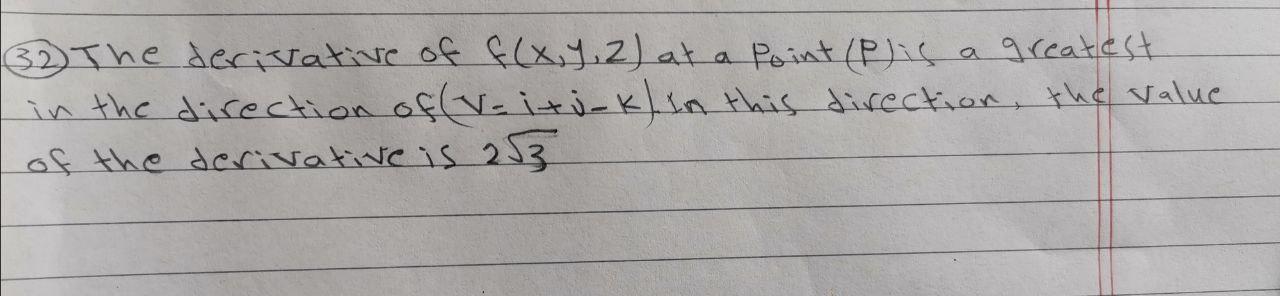 (32) The derivative of f(x,y,z) at a Point (P) is a greatest
in the direction of (v=i+j-k). In this direction, the value
of the derivative is 2√3